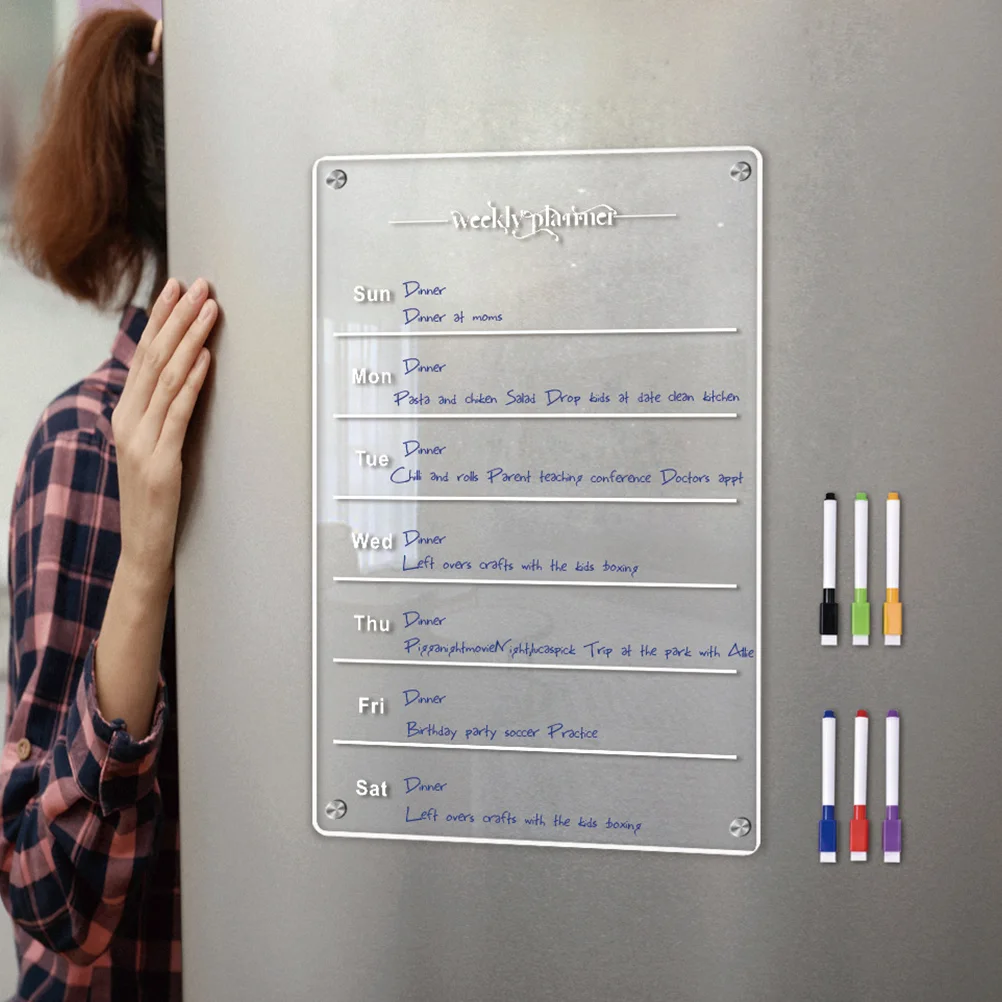 weekly planner
Sun Dinner
Dinner at moms
Mon Dinner
Pasta and chiken Salad Drop kids at date clean kitchen
Tue Dinner
Chili and rolls Parent teaching conference Doctors appt
Wed Dinner
Left overs crafts with the kids boxing
Thu Dinner
Trip at the park with
Fri Dinner
Birthday party soccer Practice
Sat Dinner
Left overs crafts with the kids boxing